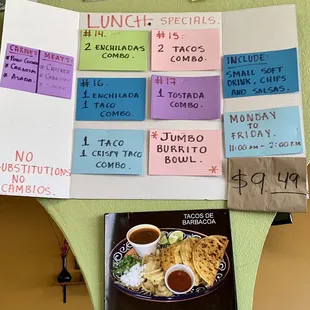 LUNCH SPECIALS.
CARNES
MEATS
* CHICKEN
* CARNITAS
* ASADA
#14.
2 ENCHILADAS
COMBO.
#15
2 TACOS
COMBO.
#16.
1 ENCHILADA
1 TACO
COMBO.
#17
1 TOSTADA
COMBO.
INCLUDE.
SMALL SOFT
DRINK, CHIPS
AND
SALSAS.
1 TACO
1 CRISPY TACO
COMBO.
* JUMBO
BURRITO
BOWL. *
MONDAY
TO
FRIDAY.
11:00 AM - 2:00 PM
NO
SUBSTITUTIONS
NO
CAMBIOS.
$9.49
TACOS DE
BARBACOA